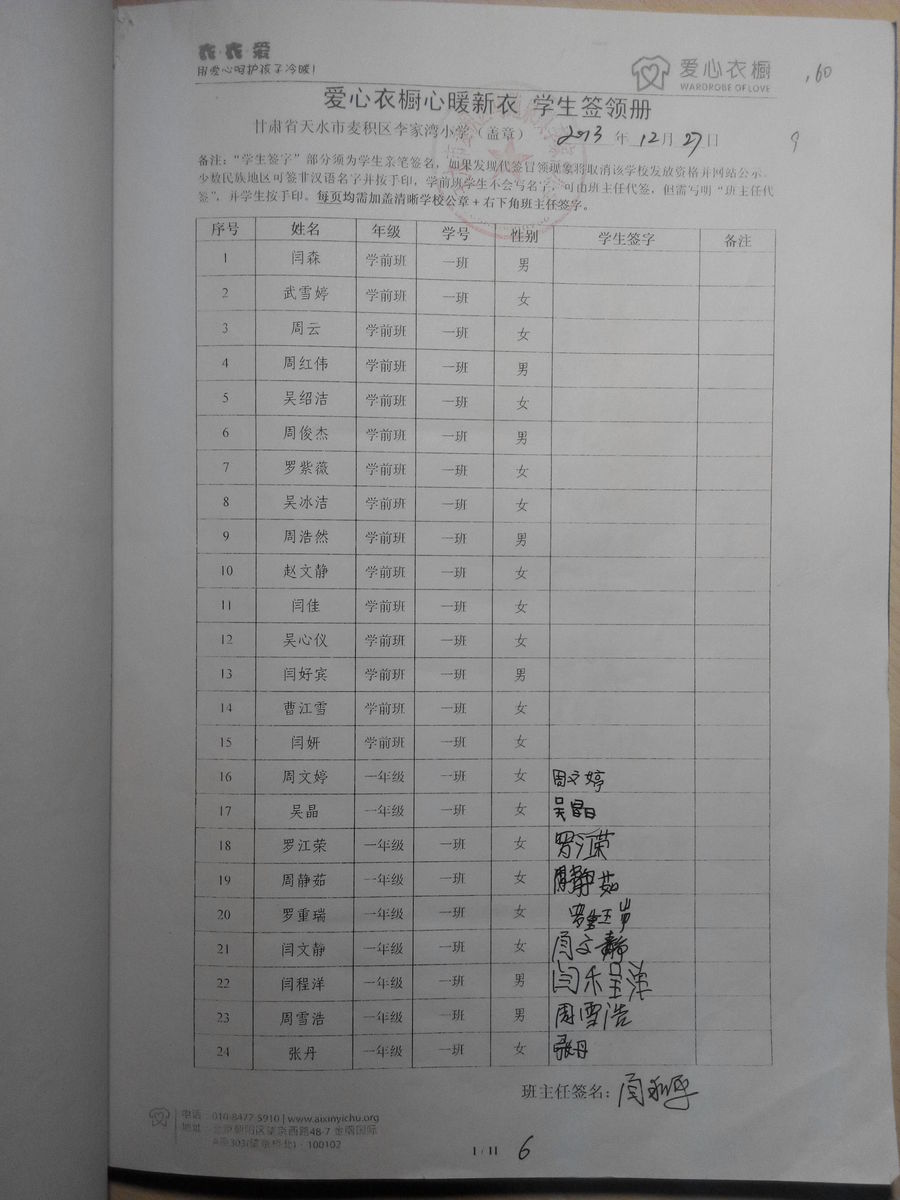 衣·衣·爱
用爱心呵护孩子冷暖!
爱心衣橱
WARDROBE OF LOVE
.60
爱心衣橱心暖新衣 学生签领册
甘肃省天水市麦积区李家湾小学（盖章） 2013 年 12 月 27 日
9
备注：“学生签字”部分须为学生亲笔签名，如果发现代签冒领现象将取消该学校发放资格并网站公示。
少数民族地区可签非汉语名字并按手印，学前班学生不会写名字，可由班主任代签，但需写明“班主任代
签”，并学生按手印。每页均需加盖清晰学校公章+右下角班主任签字。
序号 姓名 年级 学号 性别 学生签字 备注
1 闫森 学前班 一班 男
2 武雪婷 学前班 一班 女
3 周云 学前班 一班 女
4 周红伟 学前班 一班 男
5 吴绍洁 学前班 一班 女
6 周俊杰 学前班 一班 男
7 罗紫薇 学前班 一班 女
8 吴冰洁 学前班 一班 女
9 周浩然 学前班 一班 男
10 赵文静 学前班 一班 女
11 闫佳 学前班 一班 女
12 吴心仪 学前班 一班 女
13 闫好宾 学前班 一班 男
14 曹江雪 学前班 一班 女
15 闫妍 学前班 一班 女
16 周文婷 一年级 一班 女 周文婷
17 吴晶 一年级 一班 女 吴晶
18 罗江荣 一年级 一班 女 罗江荣
19 周静茹 一年级 一班 女 周静茹
20 罗重瑞 一年级 一班 女 罗重瑞
21 闫文静 一年级 一班 女 闫文静
22 闫程洋 一年级 一班 男 闫程洋
23 周雪浩 一年级 一班 男 周雪浩
24 张丹 一年级 一班 女 张丹
班主任签名：
电话 010-8477-5910 | www.aixinyichu.org
地址 北京朝阳区望京西路48-7 金隅国际
A座303(望京桥北) · 100102
1 / 11 6